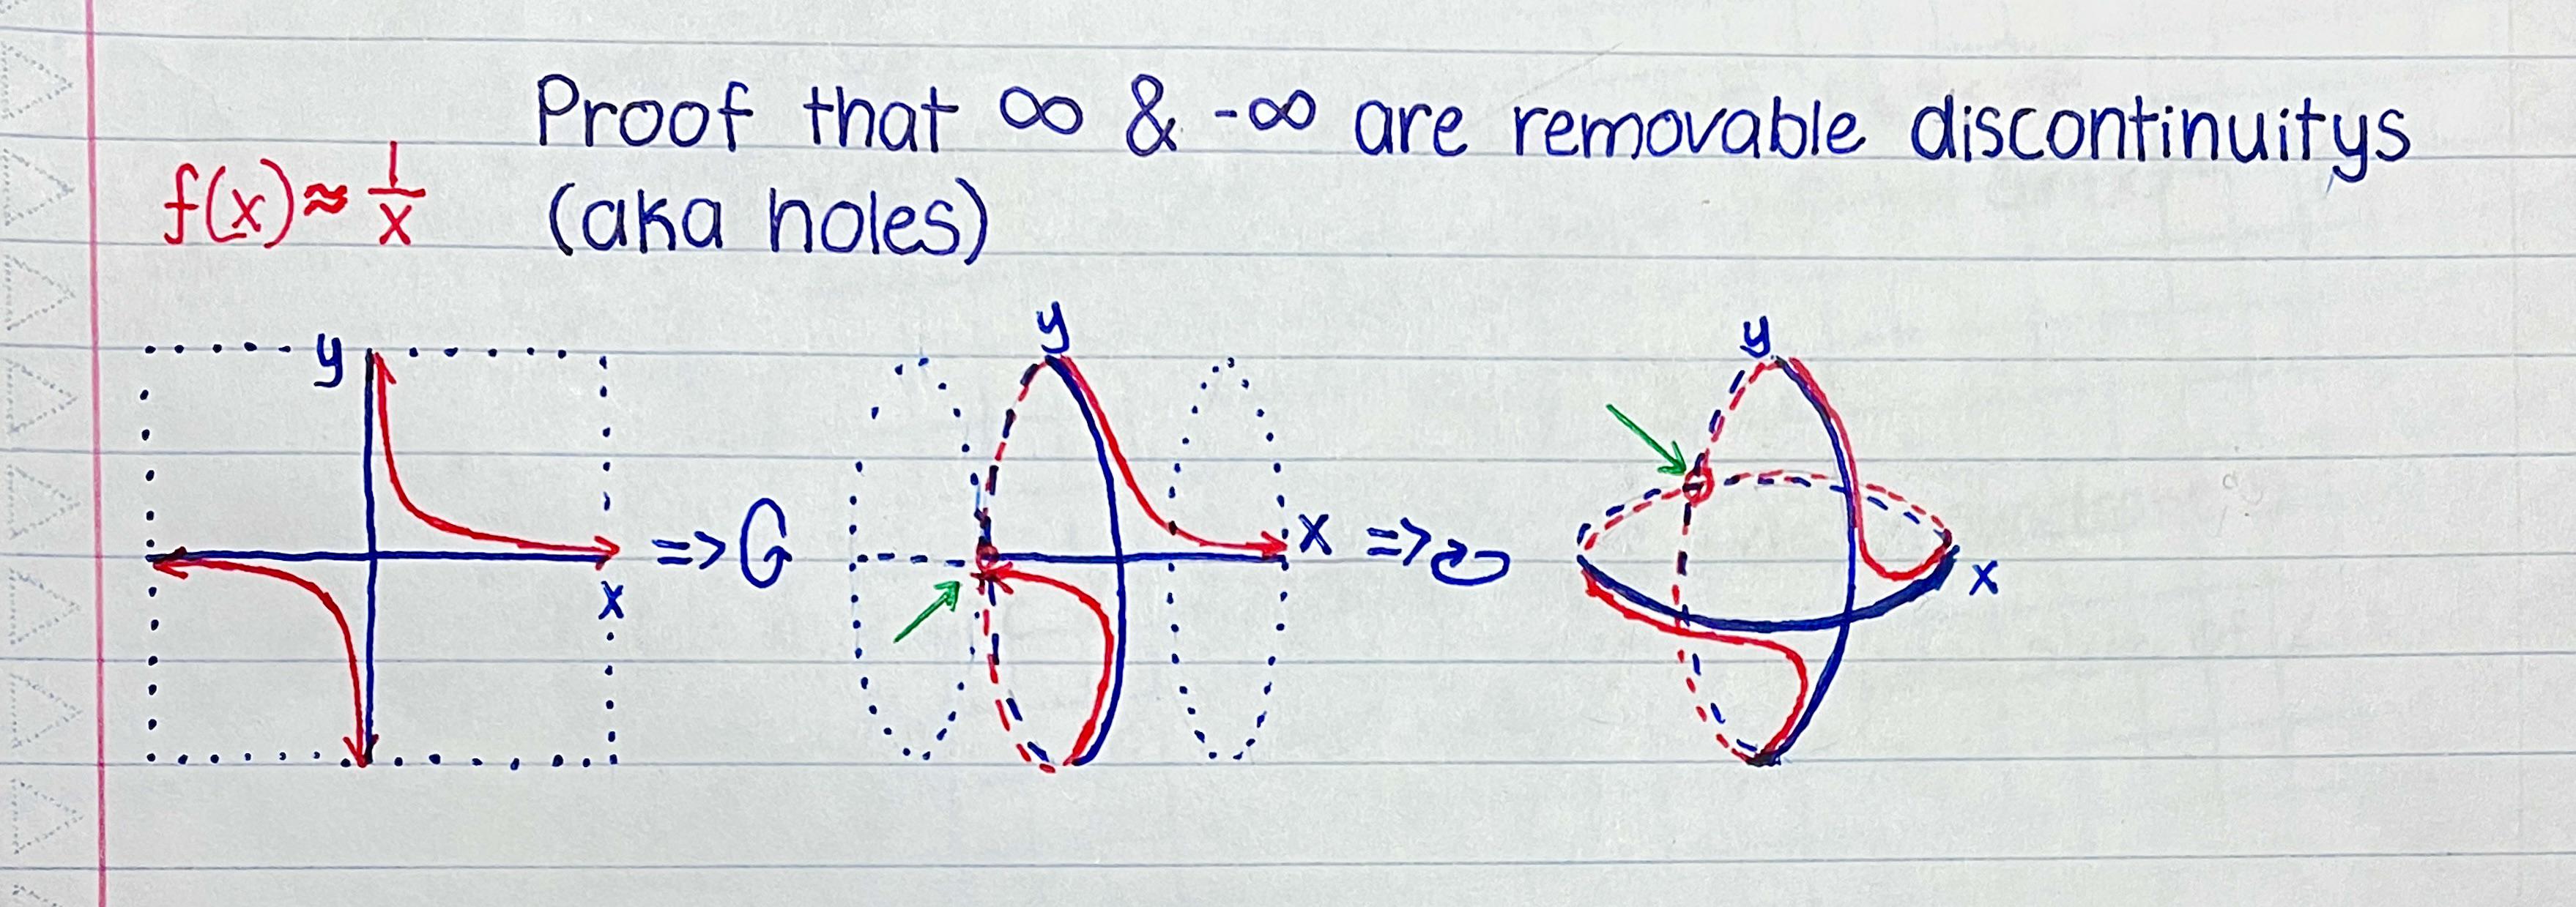 Proof that ∞ & -∞ are removable discontinuitys
f(x)≈ 1/x (aka holes)
y
x
=>
y
x
=>
y
x